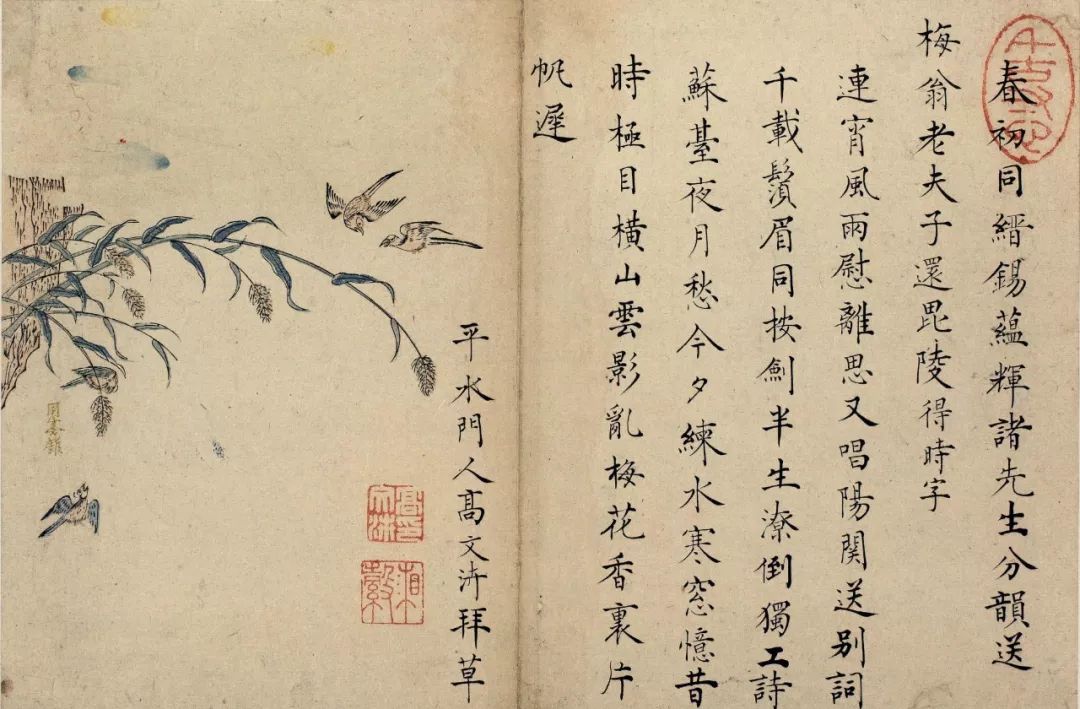 春初同縉錫蘊輝諸先生分韻送
梅翁老夫子還毘陵得時字
連宵風雨慰離思又唱陽關送別詞
千載鬚眉同按劍半生潦倒獨工詩
蘇臺夜月愁今夕練水寒窓憶昔
時極目橫山雲影亂梅花香裏片
帆遲
平水門人高文拜草